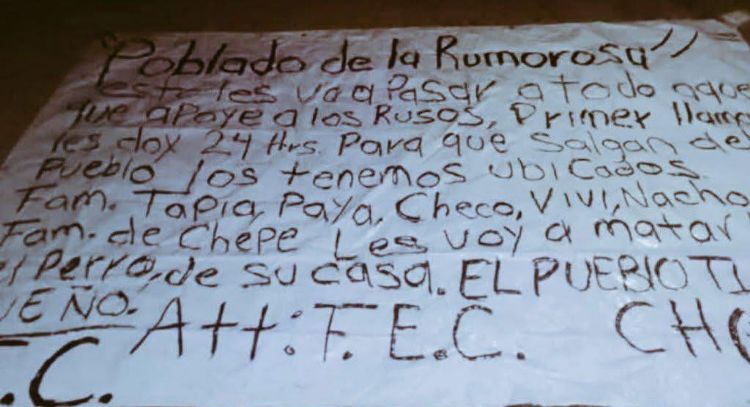 "Poblado de la Rumorosa"
esto les va a Pasar a todo aque
que apoye a los Rusos, Primer llama
les doy 24 Hrs. Para que salgan de
Pueblo los tenemos ubicados.
Fam. Tapia, Paya, Checo, Vivi, Nacho
Fam. de Chepe Les voy a matar
el Perro, de su casa. EL PUEBlO TI
UEÑO. Att: F.E.C. CHG
.C.